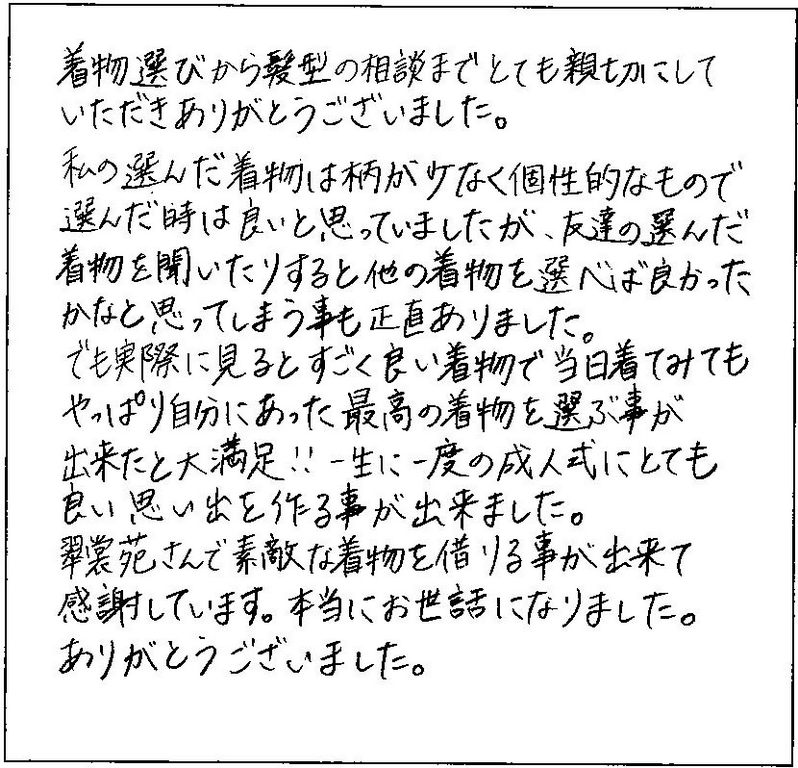 着物選びから髪型の相談までとても親切にして
いただきありがとうございました。
私の選んだ着物は柄が少なく個性的なもので
選んだ時は良いと思っていましたが、友達の選んだ
着物を聞いたりすると他の着物を選べば良かった
かなと思ってしまう事も正直ありました。
でも実際に見るとすごく良い着物で当日着てみても
やっぱり自分にあった最高の着物を選ぶ事が
出来たと大満足!! 一生に一度の成人式にとても
良い思い出を作る事が出来ました。
翠裳苑さんで素敵な着物を借りる事が出来て
感謝しています。本当にお世話になりました。
ありがとうございました。